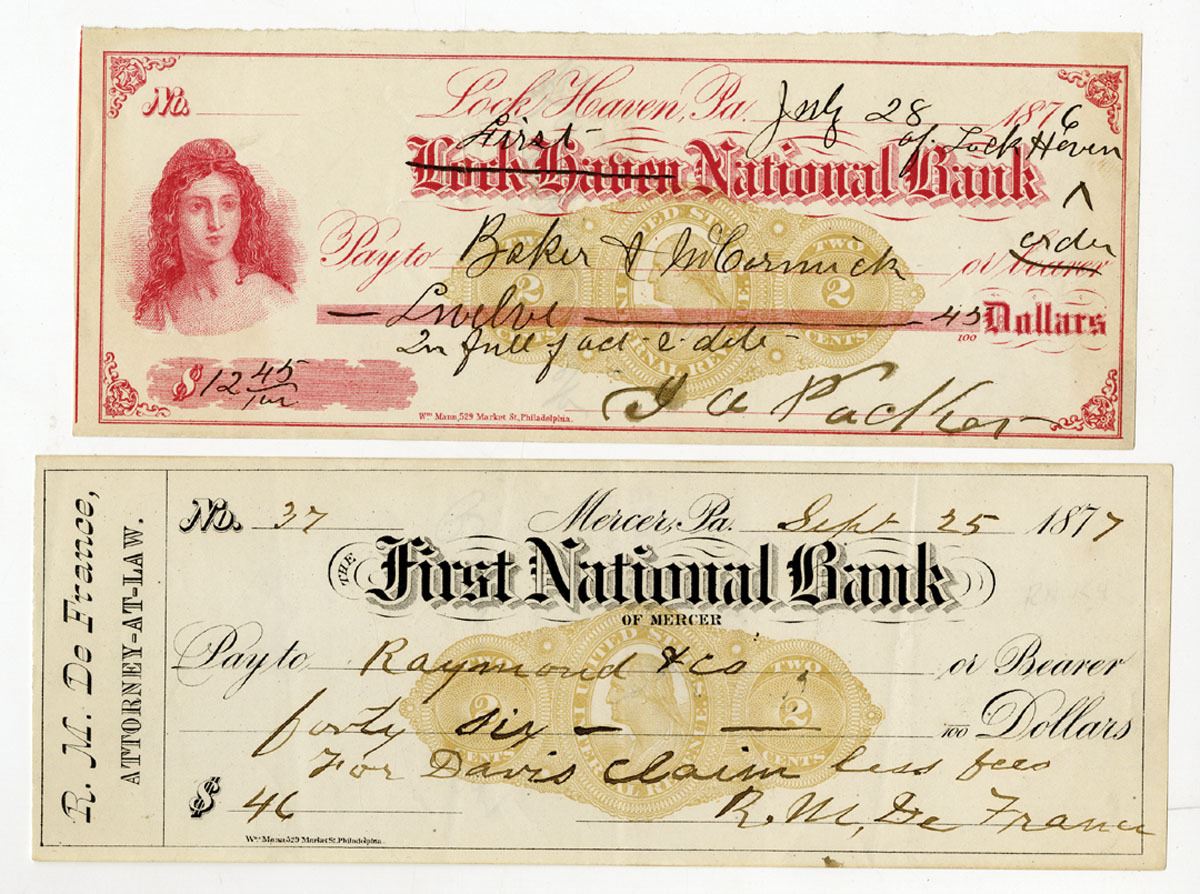 No.
Lock Haven, Pa. July 28 1876
First of Lock Heven
Lock Haven National Bank
order
Pay to Baker & McCormick or bearer
UNITED STATES
TWO 2 CENTS TWO 2 CENTS
INTERNAL REVENUE
Twelve 45/100 Dollars
In full of act
$ 12 45/100
J A Packer
Wm Mann, 529 Market St, Philadelphia.
R. M. De France,
ATTORNEY-AT-LAW.
No. 37 Mercer, Pa. Sept 25 1877
THE First National Bank
OF MERCER
Pay to Raymond & Co or Bearer
UNITED STATES
TWO 2 CENTS TWO 2 CENTS
INTERNAL REVENUE
forty six — — /100 Dollars
For Davis Claim less fees
$ 46
R. M. De France
Wm Mann 529 Market St. Philadelphia.